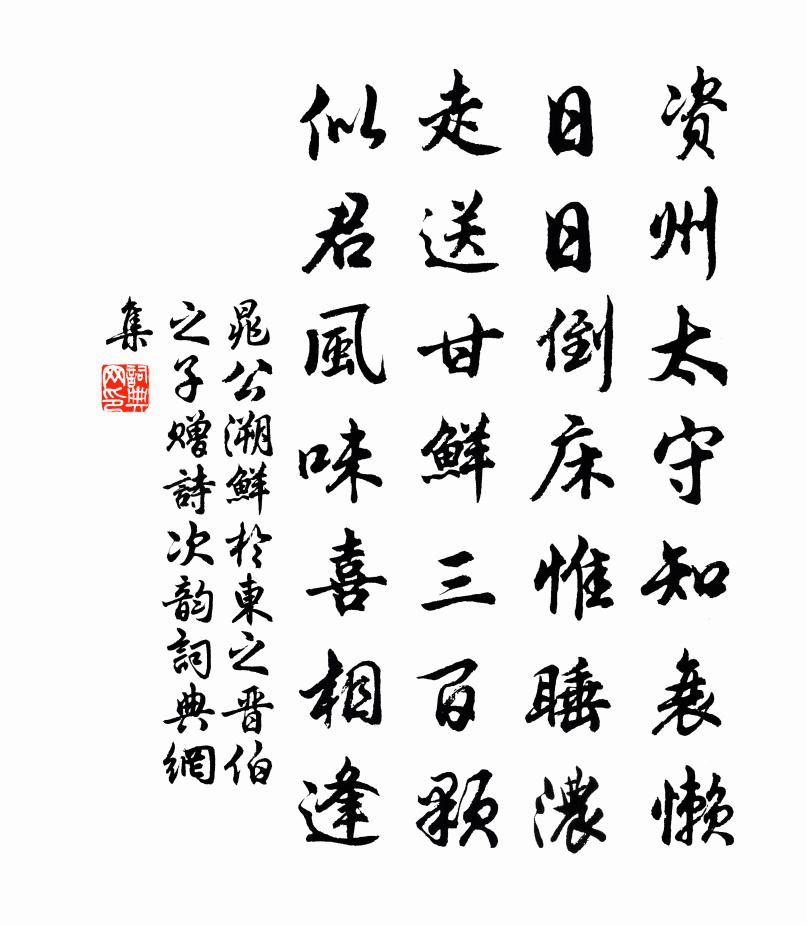 资州太守知衰懒
日日倒床惟睡浓
走送甘鲜三百颗
似君風味喜相逢
晁公溯鮮於東之晋伯
之子赠詩次韵詞典網
集
詞典
网印